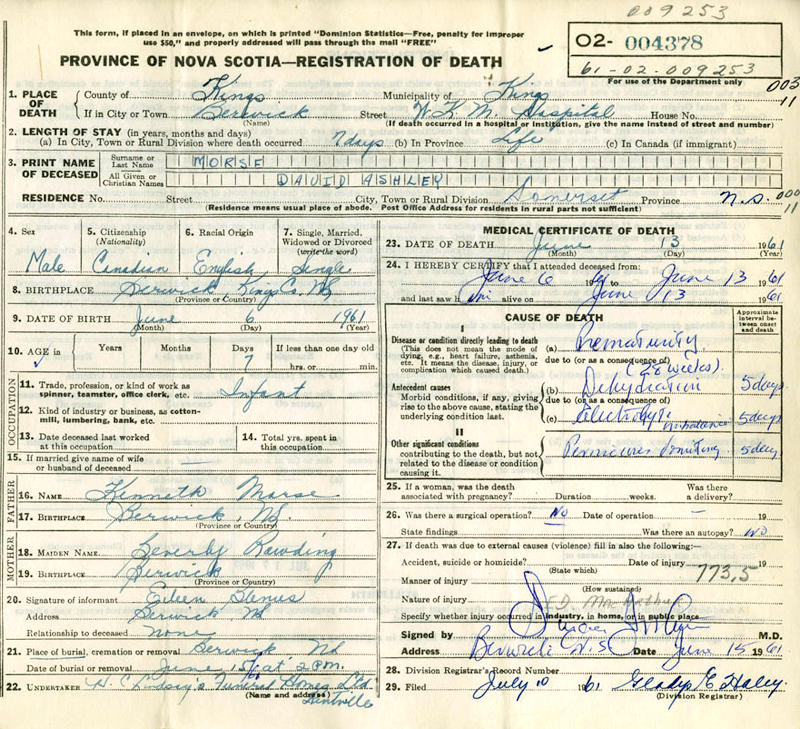 009253
This form, if placed in an envelope, on which is printed "Dominion Statistics—Free, penalty for improper
use $50," and properly addressed will pass through the mail "FREE"
02- 004378
61-02-009253
PROVINCE OF NOVA SCOTIA—REGISTRATION OF DEATH
For use of the Department only
003
11
1. PLACE OF DEATH County of Kings Municipality of Kings
If in City or Town Berwick Street W.K.M. Hospital House No.
(Name) (If death occurred in a hospital or institution, give the name instead of street and number)
2. LENGTH OF STAY (in years, months and days)
(a) In City, Town or Rural Division where death occurred 7 days (b) In Province Life (c) In Canada (if immigrant)
3. PRINT NAME OF DECEASED Surname or Last Name MORSE
All Given or Christian Names DAVID ASHLEY
RESIDENCE No. Street City, Town or Rural Division Somerset Province N.S. 000
11
(Residence means usual place of abode. Post Office Address for residents in rural parts not sufficient)
4. Sex 5. Citizenship (Nationality) 6. Racial Origin 7. Single, Married, Widowed or Divorced (write the word)
Male Canadian English Single
8. BIRTHPLACE Berwick, Kings Co. NS
(Province or Country)
9. DATE OF BIRTH June 6 1961
(Month) (Day) (Year)
10. AGE in Years Months Days If less than one day
7 hrs. or min.
OCCUPATION
11. Trade, profession, or kind of work as spinner, teamster, office clerk, etc. Infant
12. Kind of industry or business, as cotton-mill, lumbering, bank, etc.
13. Date deceased last worked at this occupation 14. Total yrs. spent in this occupation
15. If married give name of wife or husband of deceased —
FATHER
16. NAME Kenneth Morse
17. BIRTHPLACE Berwick, NS.
(Province or Country)
MOTHER
18. MAIDEN NAME Beverly Rawding
19. BIRTHPLACE Berwick
(Province or Country)
20. Signature of informant Eileen
Address Berwick NS
Relationship to deceased None
21. Place of burial, cremation or removal Berwick NS
Date of burial or removal June 15/61 at 2 P.M.
22. UNDERTAKER H. C. Lindsay's Funeral Homes Ltd
(Name and address) Kentville
MEDICAL CERTIFICATE OF DEATH
23. DATE OF DEATH June 13 1961
(Month) (Day) (Year)
24. I HEREBY CERTIFY that I attended deceased from:
June 6 to June 13 1961
and last saw him alive on June 13 1961
CAUSE OF DEATH Approximate interval between onset and death
I
Disease or condition directly leading to death (a) Prematurity
(This does not mean the mode of dying, e.g., heart failure, asthenia, etc. It means the disease, injury, or complication which caused death.)
due to (or as a consequence of) (28 weeks).
Antecedent causes (b) Dehydration 5 days
Morbid conditions, if any, giving rise to the above cause, stating the underlying condition last.
due to (or as a consequence of)
(c) Electrolyte imbalance 5 days
II
Other significant conditions
contributing to the death, but not related to the disease or condition causing it.
Pernicious Vomiting 5 days
25. If a woman, was the death associated with pregnancy? Duration weeks. Was there a delivery?
26. Was there a surgical operation? No Date of operation — 19
State findings Was there an autopsy? No
27. If death was due to external causes (violence) fill in also the following:—
Accident, suicide or homicide? Date of injury 19
(State which) 773,5
Manner of injury
(How sustained)
Nature of injury E.D. MacArthur
Specify whether injury occurred in industry, in home, or in public place
Signed by M.D.
Address Berwick N.S. Date June 15 1961
28. Division Registrar's Record Number
29. Filed July 10 1961 Gladys E. Haley
(Division Registrar)